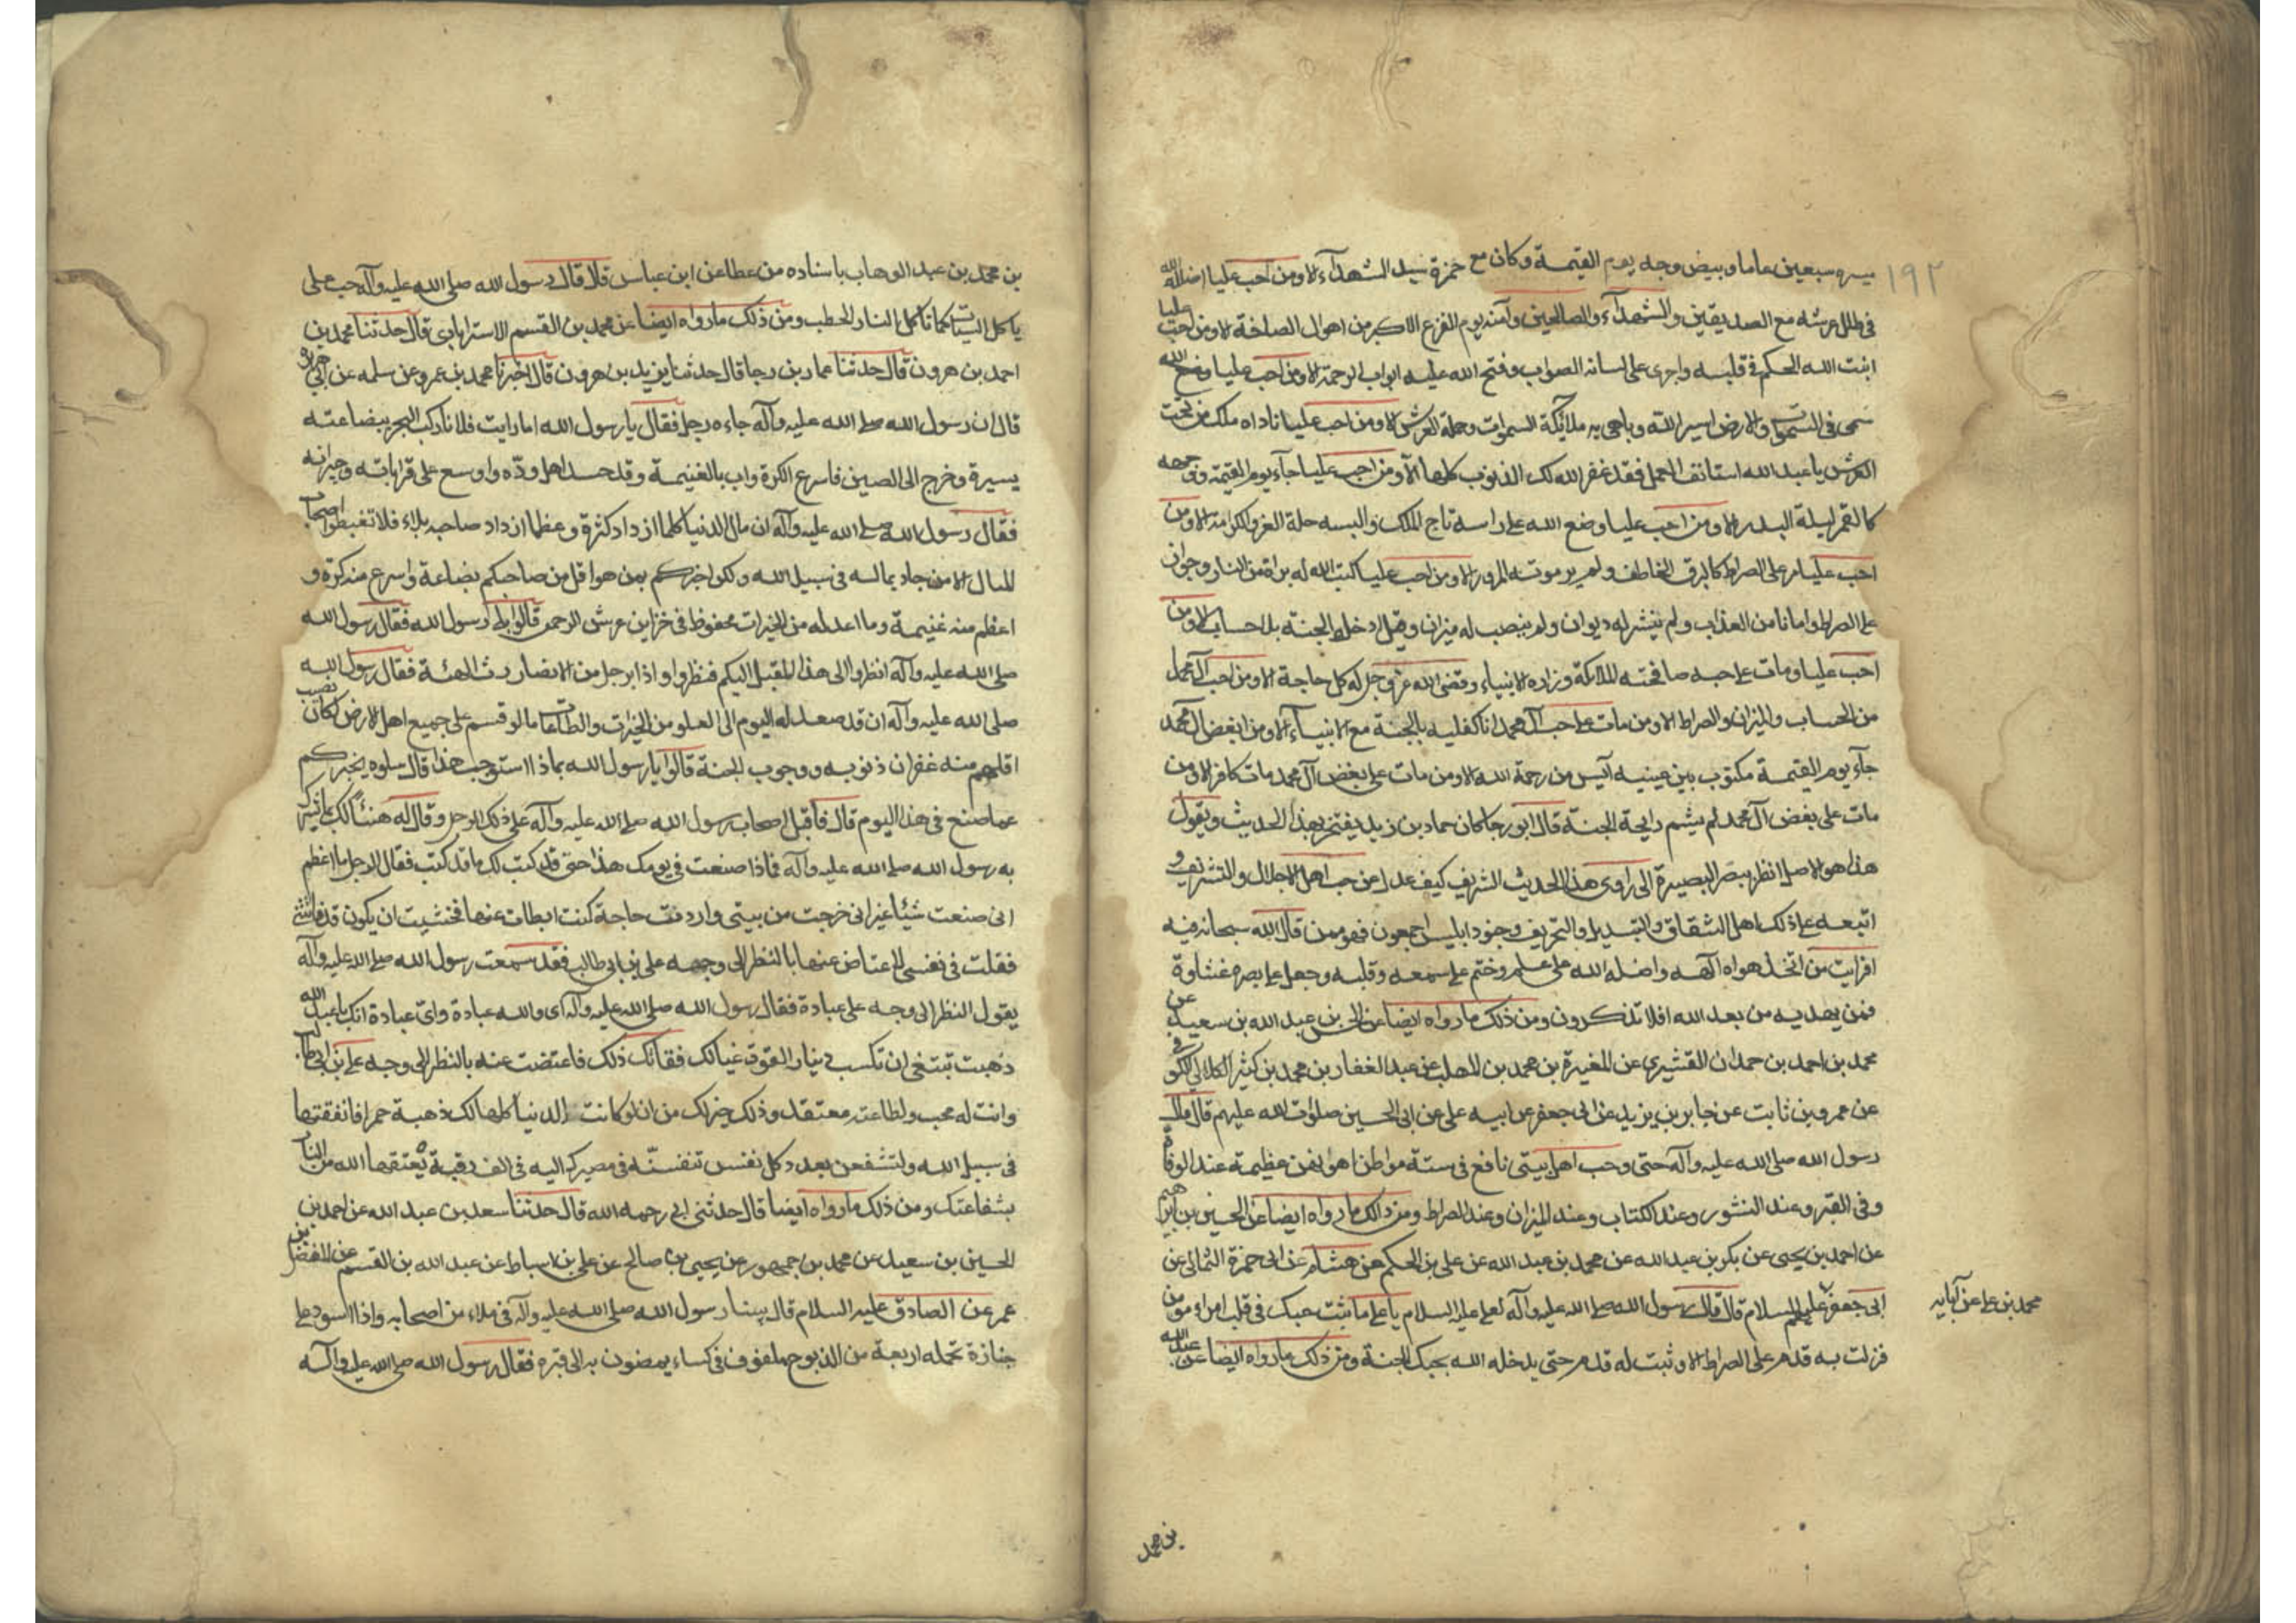 ١٩٢
مسيرة سبعين عاما وبيض وجهه يوم القيمة وكان مع حمزة سيد الشهدآء الا ومن احب عليا اضله الله
في ظلل عرشه مع الصديقين والشهدآء والصالحين وآمنه يوم الفزع الاكبر من اهوال الصاخة الا ومن احب عليا
اثبت الله الحكم في قلبه واجرى على لسانه الصواب وفتح الله عليه ابواب الرحمة الا ومن احب عليا
سمى في السموات والارض اسير الله وباهى به ملائكة السموات وحملة العرش الا ومن احب عليا ناداه ملك من تحت
العرش يا عبد الله استانف العمل فقد غفر الله لك الذنوب كلها الا ومن احب عليا جآء يوم القيمة ووجهه
كالقمر ليلة البدر الا ومن احب عليا وضع الله على راسه تاج الملك والبسه حلة العز والكرامة الا ومن
احب عليا مر على الصراط كالبرق الخاطف ولم ير موتة المرور الا ومن احب عليا كتب الله له براة من النار وجوازا
على الصراط وامانا من العذاب ولم ينشر له ديوان ولم ينصب له ميزان وقيل ادخل الجنة بلا حساب الا ومن
احب عليا ومات على حبه صافحته الملائكة وزاره الانبياء وقضى الله عز وجل له كل حاجة الا ومن احب آل محمد
من الحساب والميزان والصراط الا ومن مات على حب آل محمد انا كفليه بالجنة مع الانبيآء الا ومن ابغض آل محمد
جآء يوم القيمة مكتوب بين عينيه آيس من رحمة الله الا ومن مات على بغض آل محمد مات كافرا الا ومن
مات على بغض آل محمد لم يشم رايحة الجنة قال ابو رجا كان حماد بن زيد يفتخر بهذا الحديث ويقول
هذا هو الاصل انظر ببصر البصيرة الى راوى هذا الحديث الشريف كيف عدل عن حب اهل الاجلال والتشريف و
اتبعه على ذلك اهل الشقاق والتبديل والتحريف وجنود ابليس اجمعون فهو ممن قال الله سبحانه فيه
افرايت من اتخذ هواه آلهه واضله الله على علم وختم على سمعه وقلبه وجعل على بصره غشاوة
فمن يهديه من بعد الله افلا تذكرون ومن ذلك ما رواه ايضا عن الحسن بن عبد الله بن سعيد عن
محمد بن احمد بن حمدان القشيرى عن المغيرة بن محمد بن المهلب عن عبد الغفار بن محمد بن كثير الكلابي الكوفي
عن عمرو بن ثابت عن جابر بن يزيد عن ابى جعفر عن ابيه على عن ابى الحسين صلوات الله عليهم قال قال
رسول الله صلى الله عليه وآله حبى وحب اهل بيتى نافع فى ستة مواطن اهوالهن عظيمة عند الوفاة
وفى القبر وعند النشور وعند الكتاب وعند الميزان وعند الصراط ومن ذلك ما رواه ايضا عن الحسين بن ابراهيم
عن احمد بن يحيى عن بكر بن عبد الله عن محمد بن عبد الله عن على بن الحكم عن هشام عن ابى حمزة الثمالى عن
ابى جعفر عليهم السلام قال قال رسول الله صلى الله عليه وآله لعلى عليه السلام يا على ما ثبت حبك فى قلب امراء مؤمن
محمد بن على عن آبايه
فزلت به قدم على الصراط الا وثبت له قدم حتى يدخله الله بحبك الجنة ومن ذلك ما رواه ايضا عن عبد الله
بن محمد
بن محمد بن عبد الوهاب باسناده من عطا عن ابن عباس قال قال رسول الله صلى الله عليه وآله حب على
ياكل السيئات كما تاكل النار الحطب ومن ذلك ما رواه ايضا عن محمد بن القسم الاسترابادى قال حدثنا محمد بن
احمد بن هرون قال حدثنا عمار بن رجا قال حدثنا يزيد بن هرون قال اخبرنا محمد بن عمرو عن سلمه عن ابى هريرة
قال ان رسول الله صلى الله عليه وآله جاءه رجل فقال يا رسول الله اما رايت فلانا ركب البحر ببضاعته
يسيرة وخرج الى الصين فاسرع الكرة واب بالغنيمة وقد حسد اهل ودّه واوسع على قراباته وجيرانه
فقال رسول الله صلى الله عليه وآله ان مال الدنيا كلما ازداد كثرة وعظما ازداد صاحبه بلاء فلا تغبطوا اصحاب
المال الا من جاد بماله فى سبيل الله ولكن اخبركم بمن هو اقل من صاحبكم بضاعة واسرع منه كرة و
اعظم منه غنيمة وما اعد له من الخيرات محفوظ فى خزاين عرش الرحمن قالوا بلى رسول الله فقال رسول الله
صلى الله عليه وآله انظروا الى هذا المقبل اليكم فنظروا واذا برجل من الانصار رث الهئة فقال رسول الله
صلى الله عليه وآله ان قد صعد له اليوم الى العلو من الخيرات والطاعات ما لو قسم على جميع اهل الارض لكان نصيب
اقلهم منه غفران ذنوبه ووجوب الجنة قالوا يا رسول الله بماذا استوجب هذا قال سلوه يخبركم
عما صنع فى هذا اليوم قال فاقبل اصحاب رسول الله صلى الله عليه وآله على ذلك الرجل وقال له هنيئًا لك ما بشرك
به رسول الله صلى الله عليه وآله فماذا صنعت فى يومك هذا حتى قد كتب لك ما قد كتب فقال الرجل ما اعلم
انى صنعت شيئا غير انى خرجت من بيتى واردفت حاجة كنت ابطات عنها فخشيت ان يكون قد فاتتنى
فقلت فى نفسى لاعتاض عنها بالنظر الى وجهه على بن ابى طالب فقد سمعت رسول الله صلى الله عليه وآله
يقول النظر الى وجه على عبادة فقال رسول الله صلى الله عليه وآله اى والله عبادة واىّ عبادة انك يا عبد الله
ذهبت تبتغى ان تكسب دينار القوت عيالك ففاتك ذلك فاعتضت عنه بالنظر الى وجه على بن ابى طالب
وانت له محب ولطاعته معتقد وذلك خير لك من ان لو كانت الدنيا كلها لك ذهبة حمرا فانفقتها
فى سبيل الله ولتشفعن بعدد كل نفس تنفسته فى مصيرك اليه فى الف رقبة يُعتقها الله من النار
بشفاعتك ومن ذلك ما رواه ايضا قال حدثنى ابى رحمه الله قال حدثنا سعد بن عبد الله عن احمد بن
الحسين بن سعيد عن محمد بن جمهور عن يحيى بن صالح عن على بن اسباط عن عبد الله بن القسم عن المفضل بن
عمر عن الصادق عليه السلام قال بينا رسول الله صلى الله عليه وآله فى ملاء من اصحابه واذا اسود على
جنازة تحمله اربعة من الذبوح ملفوف فى كساء يمضون به الى قبره فقال رسول الله صلى الله عليه وآله